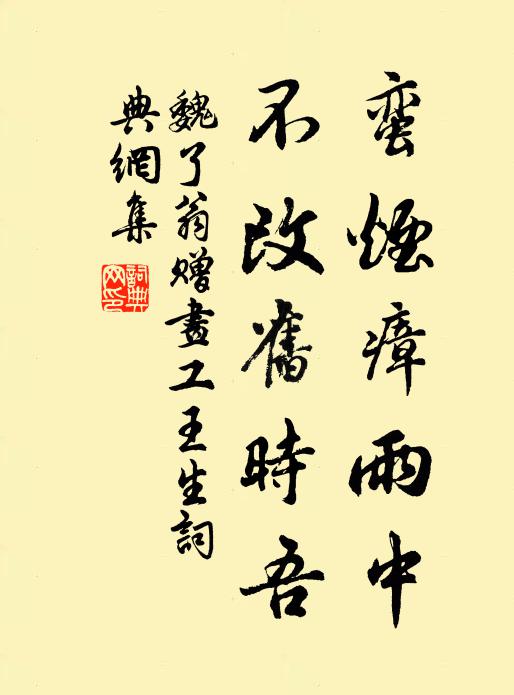 蛮煙瘴雨中
不改舊時吾
魏了翁赠畫工王生詞
典網集
詞典网印